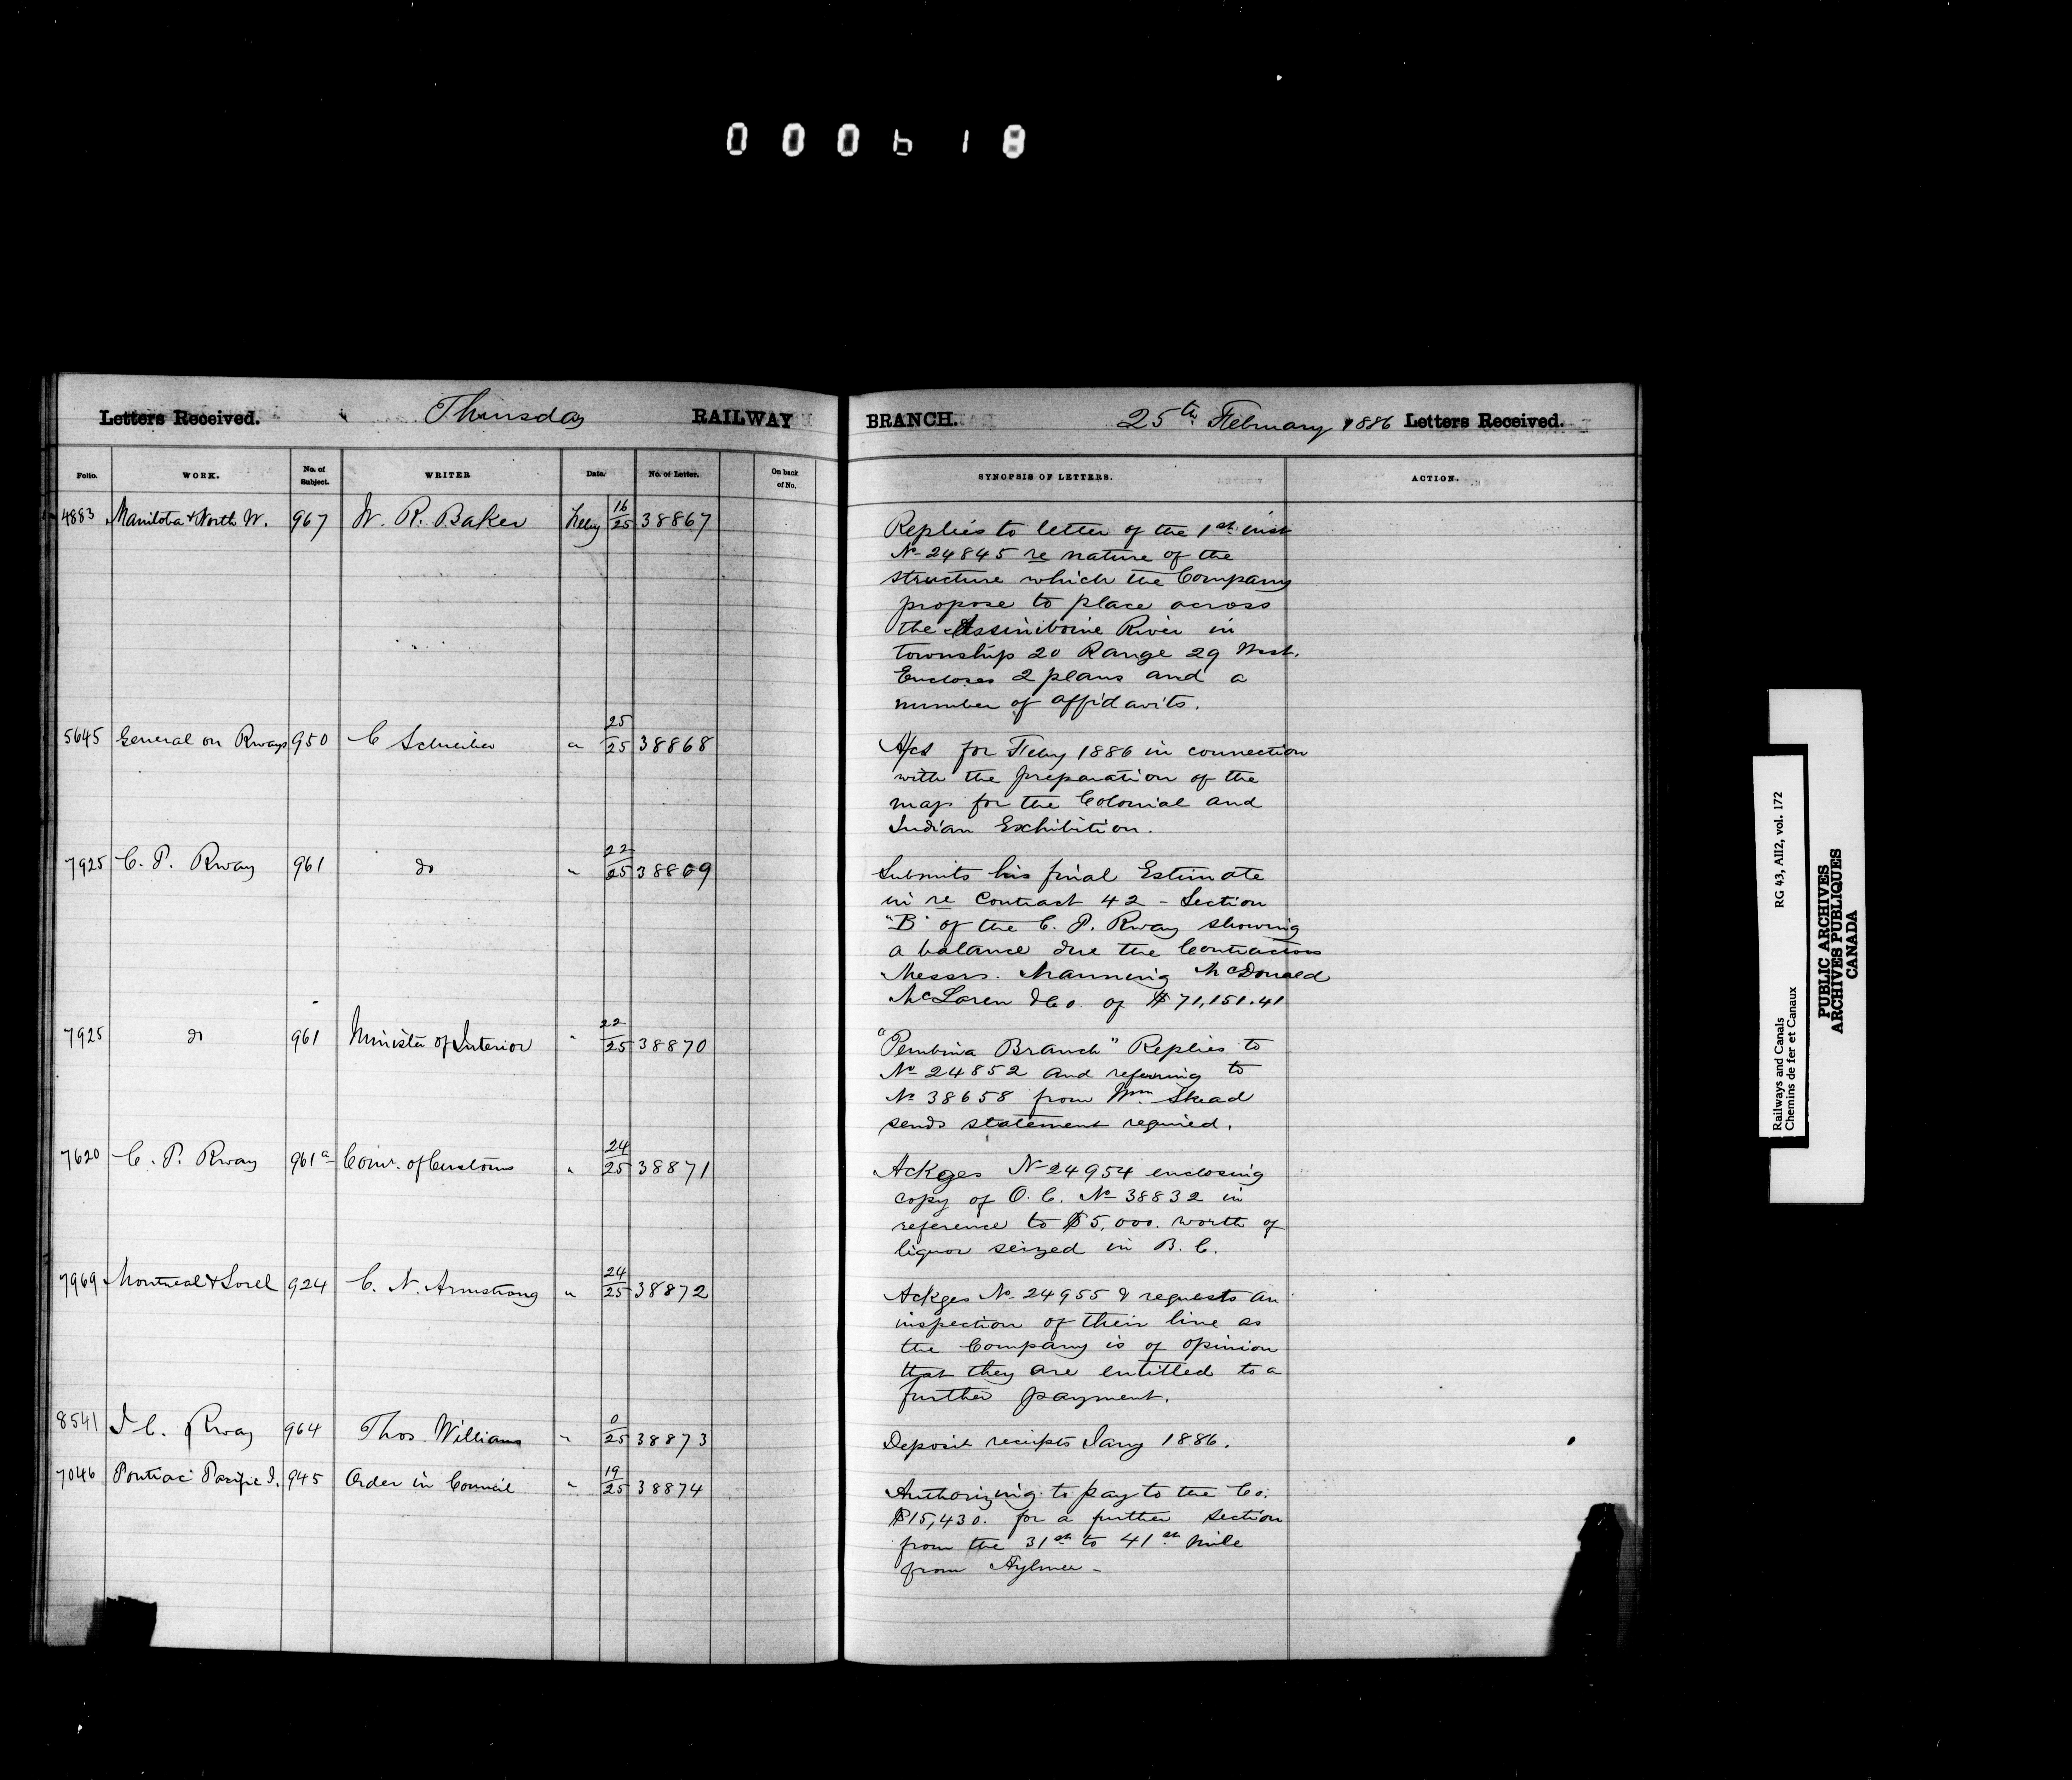 000618
Letters Received. Thursday RAILWAY BRANCH. 25th February 1886 Letters Received.
Folio. WORK. No. of Subject. WRITER Date. No. of Letter. On back of No. SYNOPSIS OF LETTERS. ACTION.
4883 Manitoba & North W. 967 W. R. Baker Feby 16/25 38867
Replies to letter of the 1st inst
No 24845 re nature of the
structure which the Company
propose to place across
the Assiniboine River in
township 20 Range 29 West.
Encloses 2 plans and a
number of affidavits.
5645 General on Rways 950 C Schreiber " 25/25 38868
A/cs for Feby 1886 in connection
with the preparation of the
map for the Colonial and
Indian Exhibition.
7925 C. P. Rway 961 do " 22/25 38869
Submits his final Estimate
in re Contract 42 - Section
"B" of the C. P. Rway showing
a balance due the Contractors
Messrs. Manning McDonald
McLaren & Co. of $71,151.41
7925 do 961 Minister of Interior " 22/25 38870
"Pembina Branch" Replies to
No 24852 and referring to
No 38658 from Wm. Skead
sends statement required.
7620 C. P. Rway 961a Comr. of Customs " 24/25 38871
Ackges No 24954 enclosing
copy of O. C. No 38832 in
reference to $5,000. worth of
liquor seized in B. C.
7969 Montreal & Sorel 924 C. N. Armstrong " 24/25 38872
Ackges No 24955 & requests an
inspection of their line as
the Company is of opinion
that they are entitled to a
further payment.
8541 I C. Rway 964 Thos. Williams " 0/25 38873
Deposit receipts Jany 1886.
7046 Pontiac Pacific J. 945 Order in Council " 19/25 38874
Authorizing to pay to the Co.
$15,430. for a further section
from the 31st to 41st mile
from Aylmer -
Railways and Canals RG 43, AII2, vol. 172
Chemins de fer et Canaux
PUBLIC ARCHIVES
ARCHIVES PUBLIQUES
CANADA